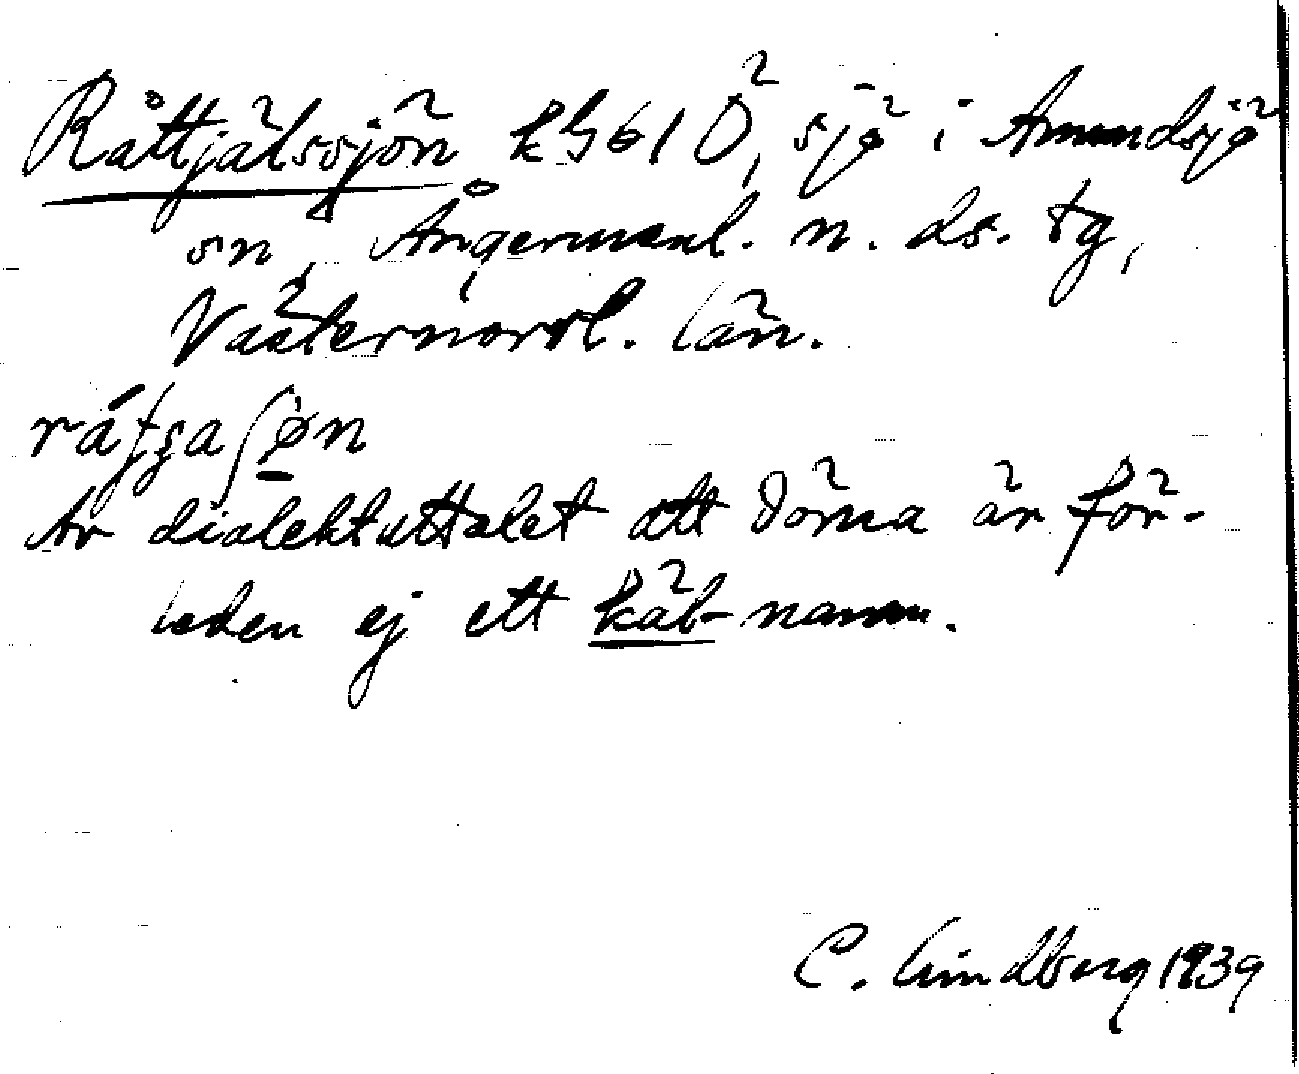 Råttjälssjön kG61Ö, sjö i Anundsjö
sn, Ångermanl. n. ds. tg,
Västernorrl. län.
Av dialektuttalet att döma är för-
leden ej ett käl-namn.
C. Lindberg 1939